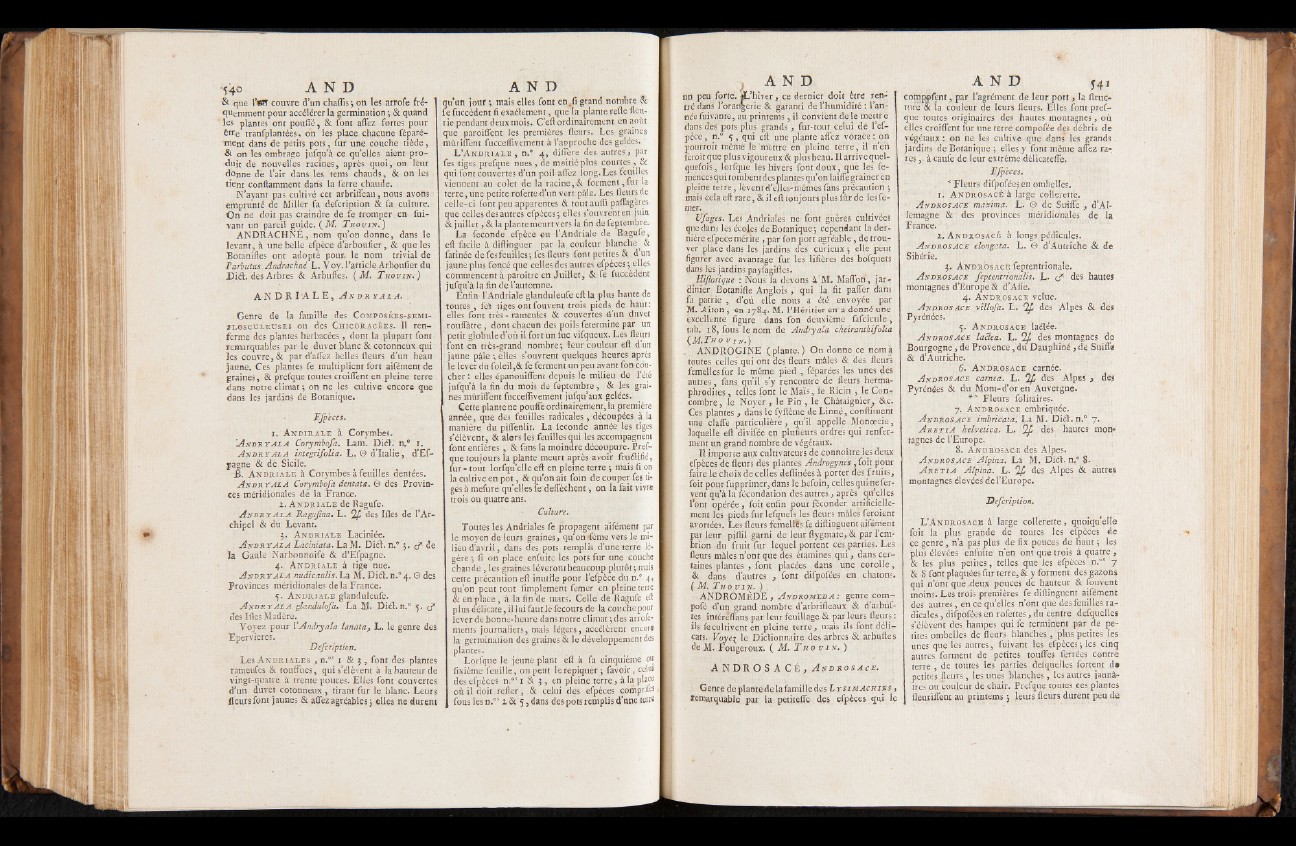 540 A N D
& que l'on couvre d'un chaſſis; on les arroſe fré-
quemment pour accélérer la germination; & quand
les plantes ont pouſſé, & ſont aſſez fortes pour
être tranſplantées, on les place chacune ſéparé-
ment dans de petits pots, ſur une couche tiède,
& on les ombrage juſqu'à ce qu'elles aient pro-
duit de nouvelles racines, après quoi, on leur
donne de l'air dans les tems chauds, & on les
tient conſtamment dans la ſerre chaude.
N'ayant pas cultivé cet arbriſſeau, nous avons
emprunté de Miller ſa deſcription & ſa culture.
On ne doit pas craindre de ſe tromper en ſui-
vant un pareil guide. (M. THOUIN.)
ANDRACHNE, nom qu'on donne, dans le
levant, à une belle eſpèce d'arbouſier, & que les
Botaniſtes ont adopté pour le nom trivial de
l'arbutus Andrachne L. Voy. l'article Arbouſier du
Dict. des Arbres & Arbuſtes. (M. THOUIN.)
ANDRIALE, ANDRYALA.
Genre de la famille des COMPOSÉES-SEMI-
FLOSCULEUSES ou des CHICORACÉES. Il ren-
ferme des plantes herbacées, dont la plupart ſont
remarquables par le duvet blanc & cotonneux qui
les couvre, & par d'aſſez belles fleurs d'un beau
jaune. Ces plantes ſe multiplient fort aiſément de
graines, & preſque toutes croiſſent en pleine terre
dans notre climat; on ne les cultive encore que
dans les jardins de Botanique.
Eſpèces.
1. ANDRIALE à Corymbes.
ANDRYALA Corymboſa. Lam. Dict. n.° 1.
ANDRYALA integrifolia. L. ☉ d'Italie, d'Eſ-
pagne & de Sicile.
B. ANDRIALE à Corymbes à feuilles dentées.
ANDRYALA Corymboſa dentata. ☉ des Provin-
ces méridionales de la France.
2. ANDRIALE de Raguſe.
ANDRYALA Raguſina. L. ♃ des Iſles de l'Ar-
chipel & du Levant.
3. ANDRIALE Laciniée.
ANDRYALA Laciniata. La M. Dict. n.° 3. ♂ de
la Gaule Narbonnoiſe & d'Eſpagne.
4. ANDRIALE à tige nue.
ANDRYALA nudicaulis. La M. Dict. n.° 4. ☉ des
Provinces méridionales de la France.
5. ANDRIALE glanduleuſe.
ANDRYALA glanduloſa. La M. Dict. n.° 5. ♂
des Iſles Madère.
Voyez pour l'Andryala lanata, L. le genre des
Epervieres.
Deſcription.
Les ANDRIALES, n.os 1 & 3, ſont des plantes
rameuſes & touffues, qui s'élèvent à la hauteur de
vingt-quatre à trente pouces. Elles ſont couvertes
d'un duvet cotonneux, tirant ſur le blanc. Leurs
fleurs ſont jaunes & aſſez agréables; elles ne durent
A N D
qu'un jour; mais elles ſont en ſi grand nombre &
ſe ſuccèdent ſi exactement, que la plante reſte fleu-
rie pendant deux mois. C'eſt ordinairement en août
que paroiſſent les premières fleurs. Les graines
mûriſſent ſucceſſivement à l'approche des gelées.
L'ANDRIALE, n.° 4, diffère des autres, par
ſes tiges preſque nues, de moitié plus courtes, &
qui ſont couvertes d'un poil aſſez long. Les feuilles
viennent au colet de la racine, & forment, ſur la
terre, une petite roſette d'un vert pâle. Les fleurs de
celle-ci ſont peu apparentes & tout auſſi paſſagères
que celles des autres eſpèces; elles s'ouvrent en Juin
& juillet, & la plante meurt vers la fin de ſeptembre.
La ſeconde eſpèce ou l'Andriale de Raguſe,
eſt facile à diſtinguer par la couleur blanche &
ſatinée de ſes feuilles; ſes fleurs ſont petites & d'un
jaune plus foncé que celles des autres eſpèces; elles
commencent à paroître en Juillet, & ſe ſuccèdent
juſqu'à la fin de l'automne.
Enfin l'Andriale glanduleuſe eſt la plus haute de
toutes, ſes tiges ont ſouvent trois pieds de haut:
elles ſont très-rameuſes & couvertes d'un duvet
rouſſâtre, dont chacun des poils ſe termine par un
petit globule d'où il ſort un ſuc viſqueux. Les fleurs
ſont en très-grand nombre; leur couleur eſt d'un
jaune pâle; elles s'ouvrent quelques heures après
le lever du ſoleil, & ſe ferment un peu avant ſon cou-
cher: elles épanouiſſent depuis le milieu de l'été
juſqu'à la fin du mois de ſeptembre, & les grai-
nes mûriſſent ſucceſſivement juſqu'aux gelées.
Cette plante ne pouſſe ordinairement, la première
année, que des feuilles radicales, découpées à la
manière du piſſenlit. La ſeconde année les tiges
s'élèvent, & alors les feuilles qui les accompagnent
ſont entières, & ſans la moindre découpure. Preſ-
que toujours la plante meurt après avoir fructifié,
ſur-tout lorſqu'elle eſt en pleine terre; mais ſi on
la cultive en pot, & qu'on ait ſoin de couper ſes ti-
ges à meſure qu'elles ſe deſſèchent, on la fait vivre
trois ou quatre ans.
Culture.
Toutes les Andriales ſe propagent aiſément par
le moyen de leurs graines, qu'on ſème vers le mi-
lieu d'avril, dans des pots remplis d'une terre lé-
gère; ſi on place enſuite les pots ſur une couche
chaude, les graines lèveront beaucoup plutôt; mais
cette précaution eſt inutile pour l'eſpèce du n.° 4,
qu'on peut tout ſimplement ſemer en pleine terre
& en place, à la fin de mars. Celle de Raguſe eſt
plus délicate, il lui faut le ſecours de la couche pour
lever de bonne-heure dans notre climat; des arroſe-
ments journaliers, mais légers, accélèrent encore
la germination des graines & le développement des
plantes.
Lorſque le jeune plant eſt à ſa cinquième ou
ſixième feuille, on peut le repiquer; ſavoir, celui
des eſpèces n.os 1 & 3, en pleine terre, à la place
où il doit reſter, & celui des eſpèces compriſes
ſous les n.os 2 & 5, dans des pots remplis d'une terre
A N D
un peu forte. L'hiver, ce dernier doit être ren-
tré dans l'orangerie & garanti de l'humidité: l'an-
née ſuivante, au printems, il convient de le mettre
dans des pots plus grands, ſur-tout celui de l'eſ-
pèce, n.° 5, qui eſt une plante aſſez vorace: on
pourroit même le mettre en pleine terre, il n'en
ſeroit que plus vigoureux & plus beau. Il arrive quel-
quefois, lorſque les hivers ſont doux, que les ſe-
mences qui tombent des plantes qu'on laiſſe grainer en
pleine terre, lèvent d'elles-mêmes ſans précaution;
mais cela eſt rare, & il eſt toujours plus ſûr de les ſe-
mer.
Uſages. Les Andriales ne ſont guères cultivées
que dans les écoles de Botanique; cependant la der-
nière eſpèce mérite, par ſon port agréable, de trou-
ver place dans les jardins des curieux; elle peut
figurer avec avantage ſur les liſières des boſquets
dans les jardins payſagiſtes.
Hiſtorique: Nous la devons à M. Maſſon, jar-
dinier Botaniſte Anglois, qui la fit paſſer dans
ſa patrie, d'où elle nous a été envoyée par
M. Aiton, en 1784. M. l'Héritier en a donné une
excellente figure dans ſon deuxième faſcicule,
tab. 18, ſous le nom de Andryala cheiranthifolia
(M. THOUIN.)
ANDROGINE (plante.) On donne ce nom à
toutes celles qui ont des fleurs mâles & des fleurs
femelles ſur le même pied, ſéparées les unes des
autres, ſans qu'il s'y rencontre de fleurs herma-
phrodites, telles ſont le Maïs, le Ricin, le Con-
combre, le Noyer, le Pin, le Châtaignier, &c.
Ces plantes, dans le ſyſtême de Linné, conſtituent
une claſſe particulière, qu'il appelle Monœcie,
laquelle eſt diviſée en pluſieurs ordres qui renfer-
ment un grand nombre de végétaux.
Il importe aux cultivateurs de connoître les deux
eſpèces de fleurs des plantes Androgynes, ſoit pour
faire le choix de celles deſtinées à porter des fruits,
ſoit pour ſupprimer, dans le beſoin, celles qui ne ſer-
vent qu'à la fécondation des autres, après qu'elles
l'ont opérée, ſoit enfin pour féconder artificielle-
ment les pieds ſur leſquels les fleurs mâles ſeroient
avortées. Les fleurs femelles ſe diſtinguent aiſément
par leur piſtil garni de leur ſtygmate, & par l'em-
brion du fruit ſur lequel portent ces parties. Les
fleurs mâles n'ont que des étamines qui, dans cer-
taines plantes, ſont placées dans une corolle,
& dans d'autres, ſont diſpoſées en chatons.
(M. THOUIN.)
ANDROMÈDE, ANDROMEDA: genre com-
poſé d'un grand nombre d'arbriſſeaux & d'arbuſ-
tes intéreſſans par leur feuillage & par leurs fleurs:
ils ſe cultivent en pleine terre, mais ils ſont déli-
cats. Voyez le Dictionnaire des arbres & arbuſtes
de M. Fougeroux. (M. THOUIN.)
ANDROSACE, ANDROSACE.
Genre de plante de la famille des LYSIMACHIES,
remarquable par la petiteſſe des eſpèces qui le
A N D 541
compoſent, par l'agrément de leur port, la ſtruc-
ture & la couleur de leurs fleurs. Elles ſont preſ-
que toutes originaires des hautes montagnes, où
elles croiſſent ſur une terre compoſée des débris de
végétaux: on ne les cultive que dans les grands
jardins de Botanique; elles y ſont même aſſez ra-
res, à cauſe de leur extrême délicateſſe.
Eſpèces.
* Fleurs diſpoſées en ombelles.
1. ANDROSACE à large collerette.
ANDROSACE maxima. L. ☉ de Suiſſe, d'Al-
lemagne & des provinces méridionales de la
France.
2. ANDROSACE à longs pédicales.
ANDROSACE elongata. L. ☉ d'Autriche & de
Sibérie.
3. ANDROSACE ſeptentrionale.
ANDROSACE ſeptentrionalis. L. ♂ des hautes
montagnes d'Europe & d'Aſie.
4. ANDROSACE velue.
ANDROSACE villoſa. L. ♃ des Alpes & des
Pyrénées.
5. ANDROSACE lactée.
ANDROSACE lactea. L. ♃ des montagnes de
Bourgogne, de Provence, du Dauphiné, de Suiſſe
& d'Autriche.
6. ANDROSACE carnée.
ANDROSACE carnea. L. ♃ des Alpes, des
Pyrénées & du Mont-d'or en Auvergne.
** Fleurs ſolitaires.
7. ANDROSACE embriquée.
ANDROSACE imbricata. La M. Dict. n.° 7.
ARETIA helvetica. L. ♃ des hautes mon-
tagnes de l'Europe.
8. ANDROSACE des Alpes.
ANDROSACE Alpina. La M. Dict. n.° 8.
ARETIA Alpina. L. ♃ des Alpes & autres
montagnes élevées de l'Europe.
Deſcription.
L'ANDROSACE à large collerette, quoiqu'elle
ſoit la plus grande de toutes les eſpèces de
ce genre, n'a pas plus de ſix pouces de haut; les
plus élevées enſuite n'en ont que trois à quatre,
& les plus petites, telles que les eſpèces n.os 7
& 8 ſont plaquées ſur terre, & y forment des gazons
qui n'ont que deux pouces de hauteur & ſouvent
moins. Les trois premières ſe diſtinguent aiſément
des autres, en ce qu'elles n'ont que des feuilles ra-
dicales, diſpoſées en roſettes, du centre deſquelles
s'élèvent des hampes qui ſe terminent par de pe-
tites ombelles de fleurs blanches, plus petites les
unes que les autres, ſuivant les eſpèces; les cinq
autres forment de petites touffes ſerrées contre
terre, de toutes les parties deſquelles ſortent de
petites fleurs, les unes blanches, les autres jaunâ-
tres ou couleur de chair. Preſque toutes ces plantes
fleuriſſent au printems; leurs fleurs durent peu de